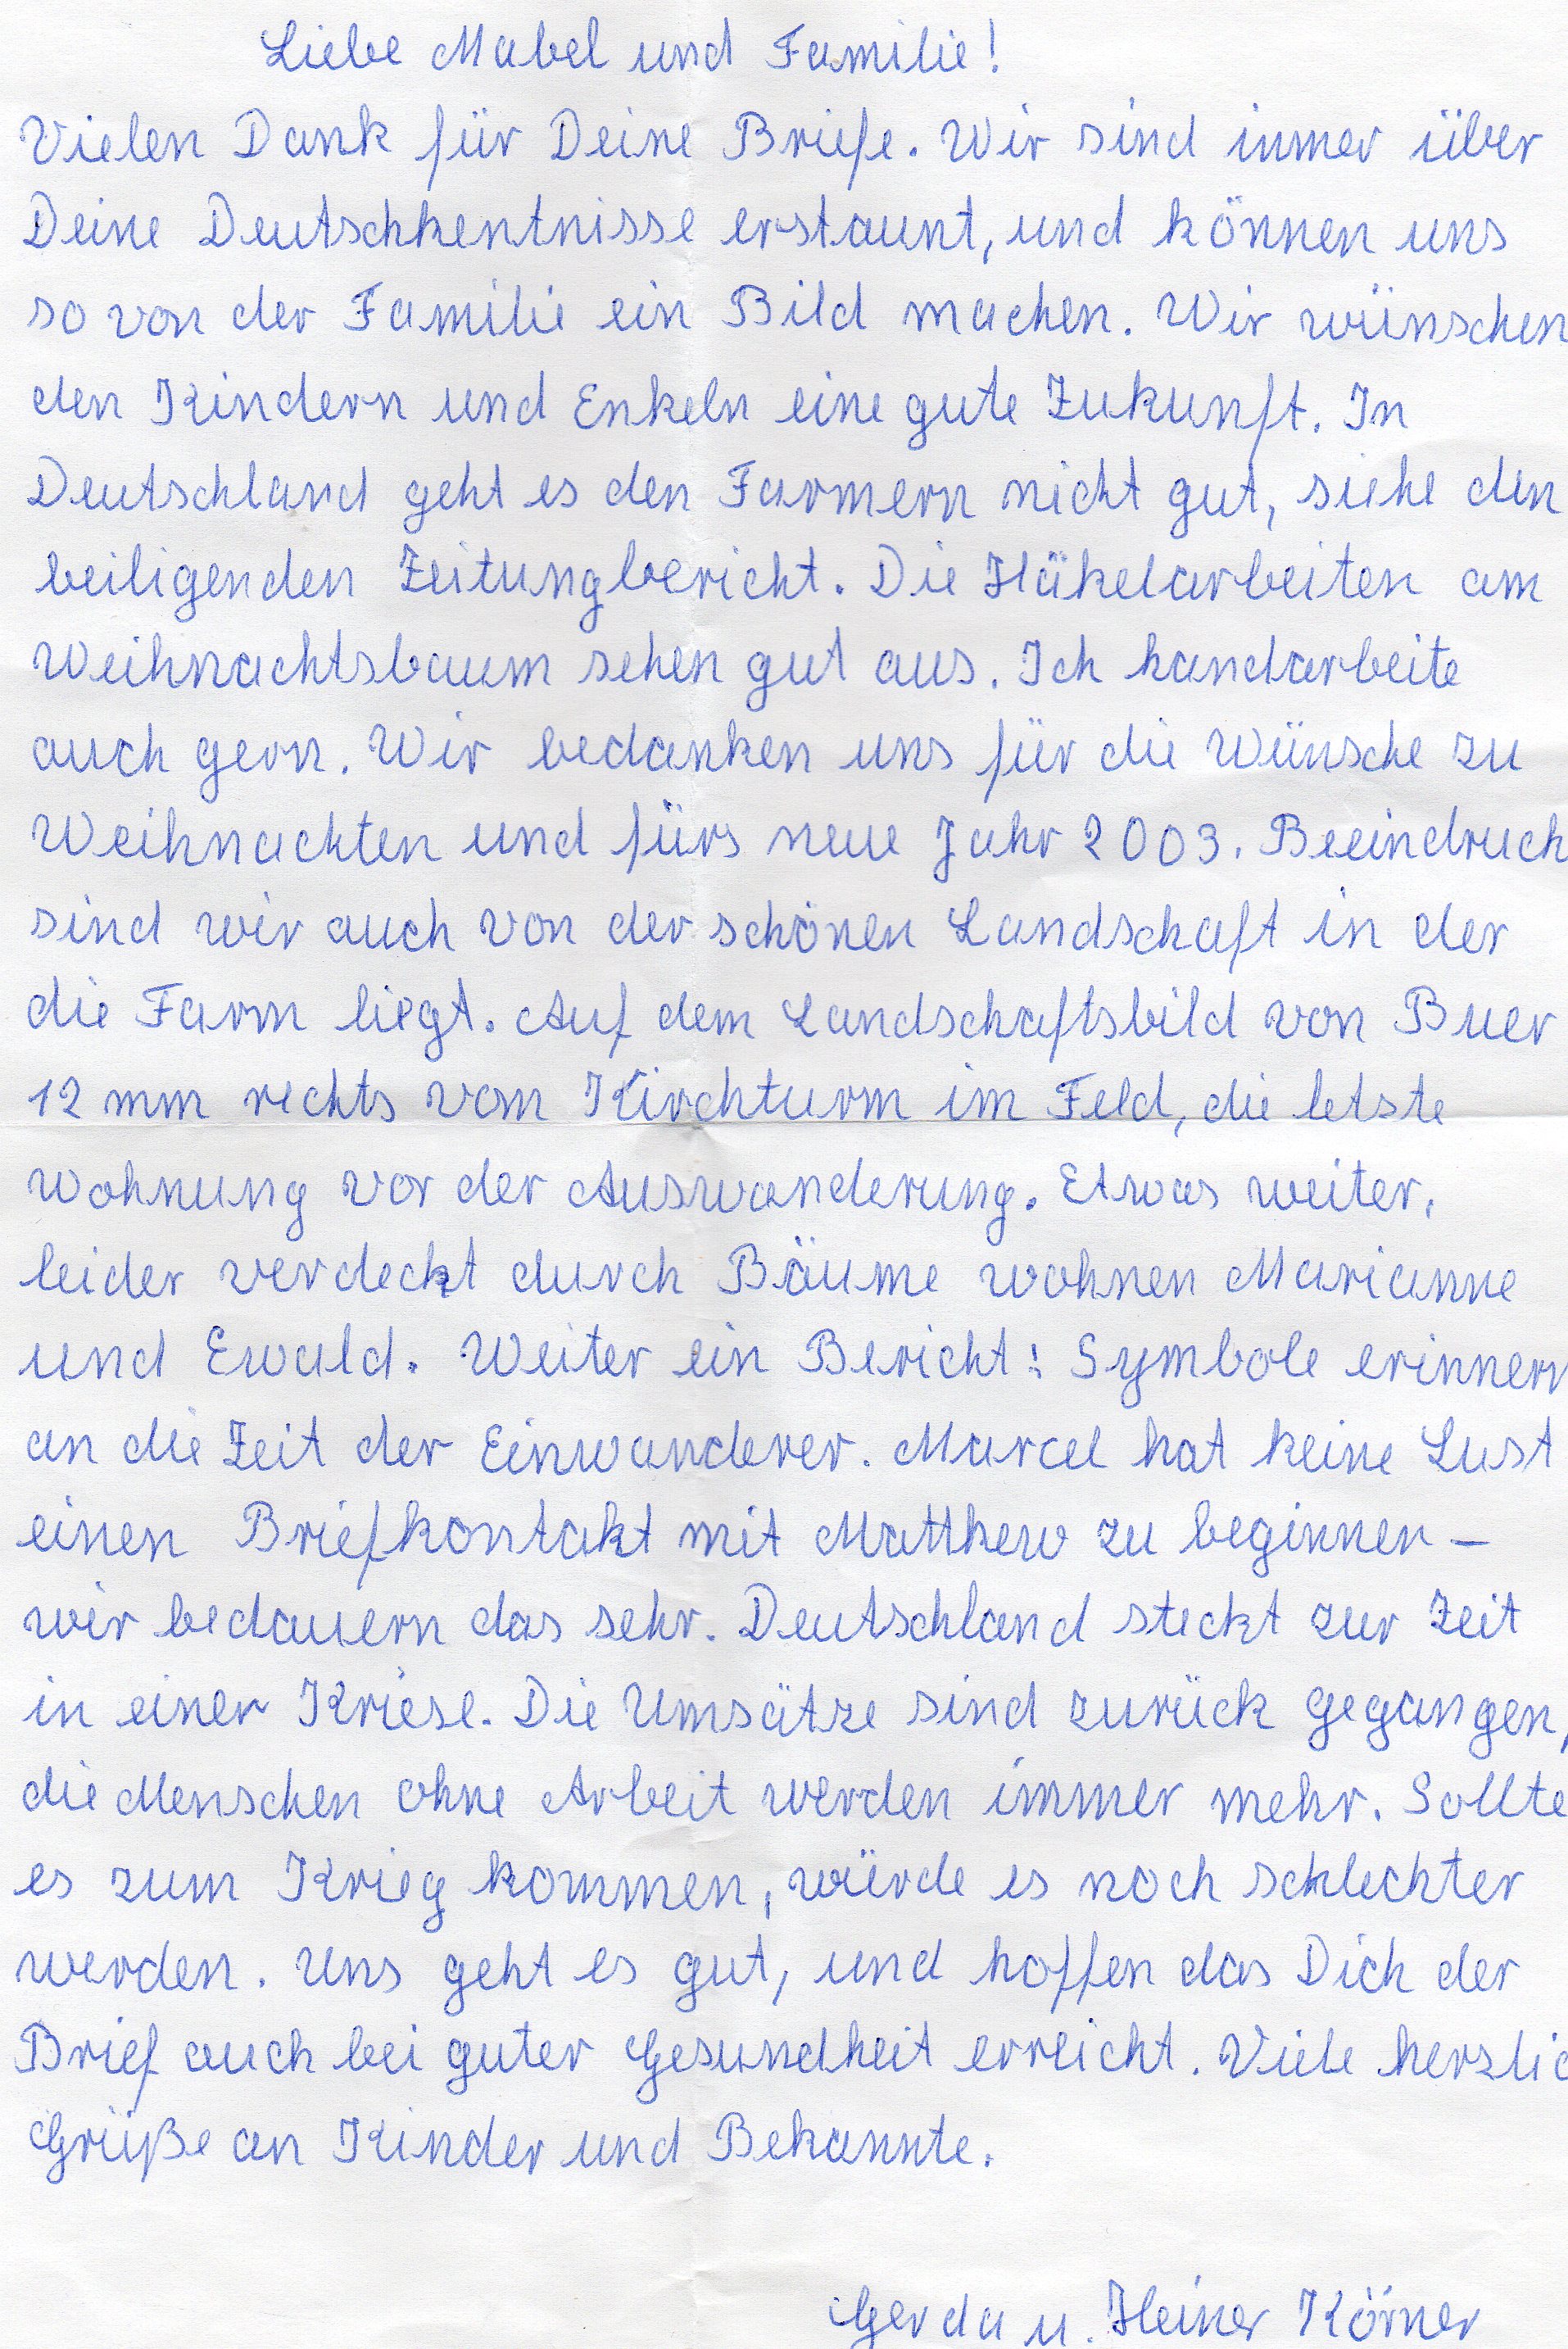 Liebe Mabel und Familie!
Vielen Dank für Deine Briefe. Wir sind immer über
Deine Deutschkentnisse erstaunt, und können uns
so von der Familie ein Bild machen. Wir wünschen
den Kindern und Enkeln eine gute Zukunft. In
Deutschland geht es den Farmern nicht gut, siehe den
beiligenden Zeitungbericht. Die Häkelarbeiten am
Weihnachtsbaum sehen gut aus. Ich handarbeite
auch gern. Wir bedanken uns für die Wünsche zu
Weihnachten und fürs neue Jahr 2003. Beeindruck
sind wir auch von der schönen Landschaft in der
die Farm liegt. Auf dem Landschaftsbild von Buer
12 mm rechts vom Kirchturm im Feld, die letste
Wohnung vor der Auswanderung. Etwas weiter,
leider verdeckt durch Bäume wohnen Marianne
und Ewald. Weiter ein Bericht: Symbole erinnern
an die Zeit der Einwanderer. Marcel hat keine Lust
einen Briefkontakt mit Matthew zu beginnen –
wir bedauern das sehr. Deutschland steckt zur Zeit
in einer Kriese. Die Umsätze sind zurück gegangen,
die Menschen ohne Arbeit werden immer mehr. Sollte
es zum Krieg kommen, würde es noch schlechter
werden. Uns geht es gut, und hoffen das Dich der
Brief auch bei guter Gesundheit erreicht. Viele herzlic
Grüße an Kinder und Bekannte.
Gerda u. Heiner Körner